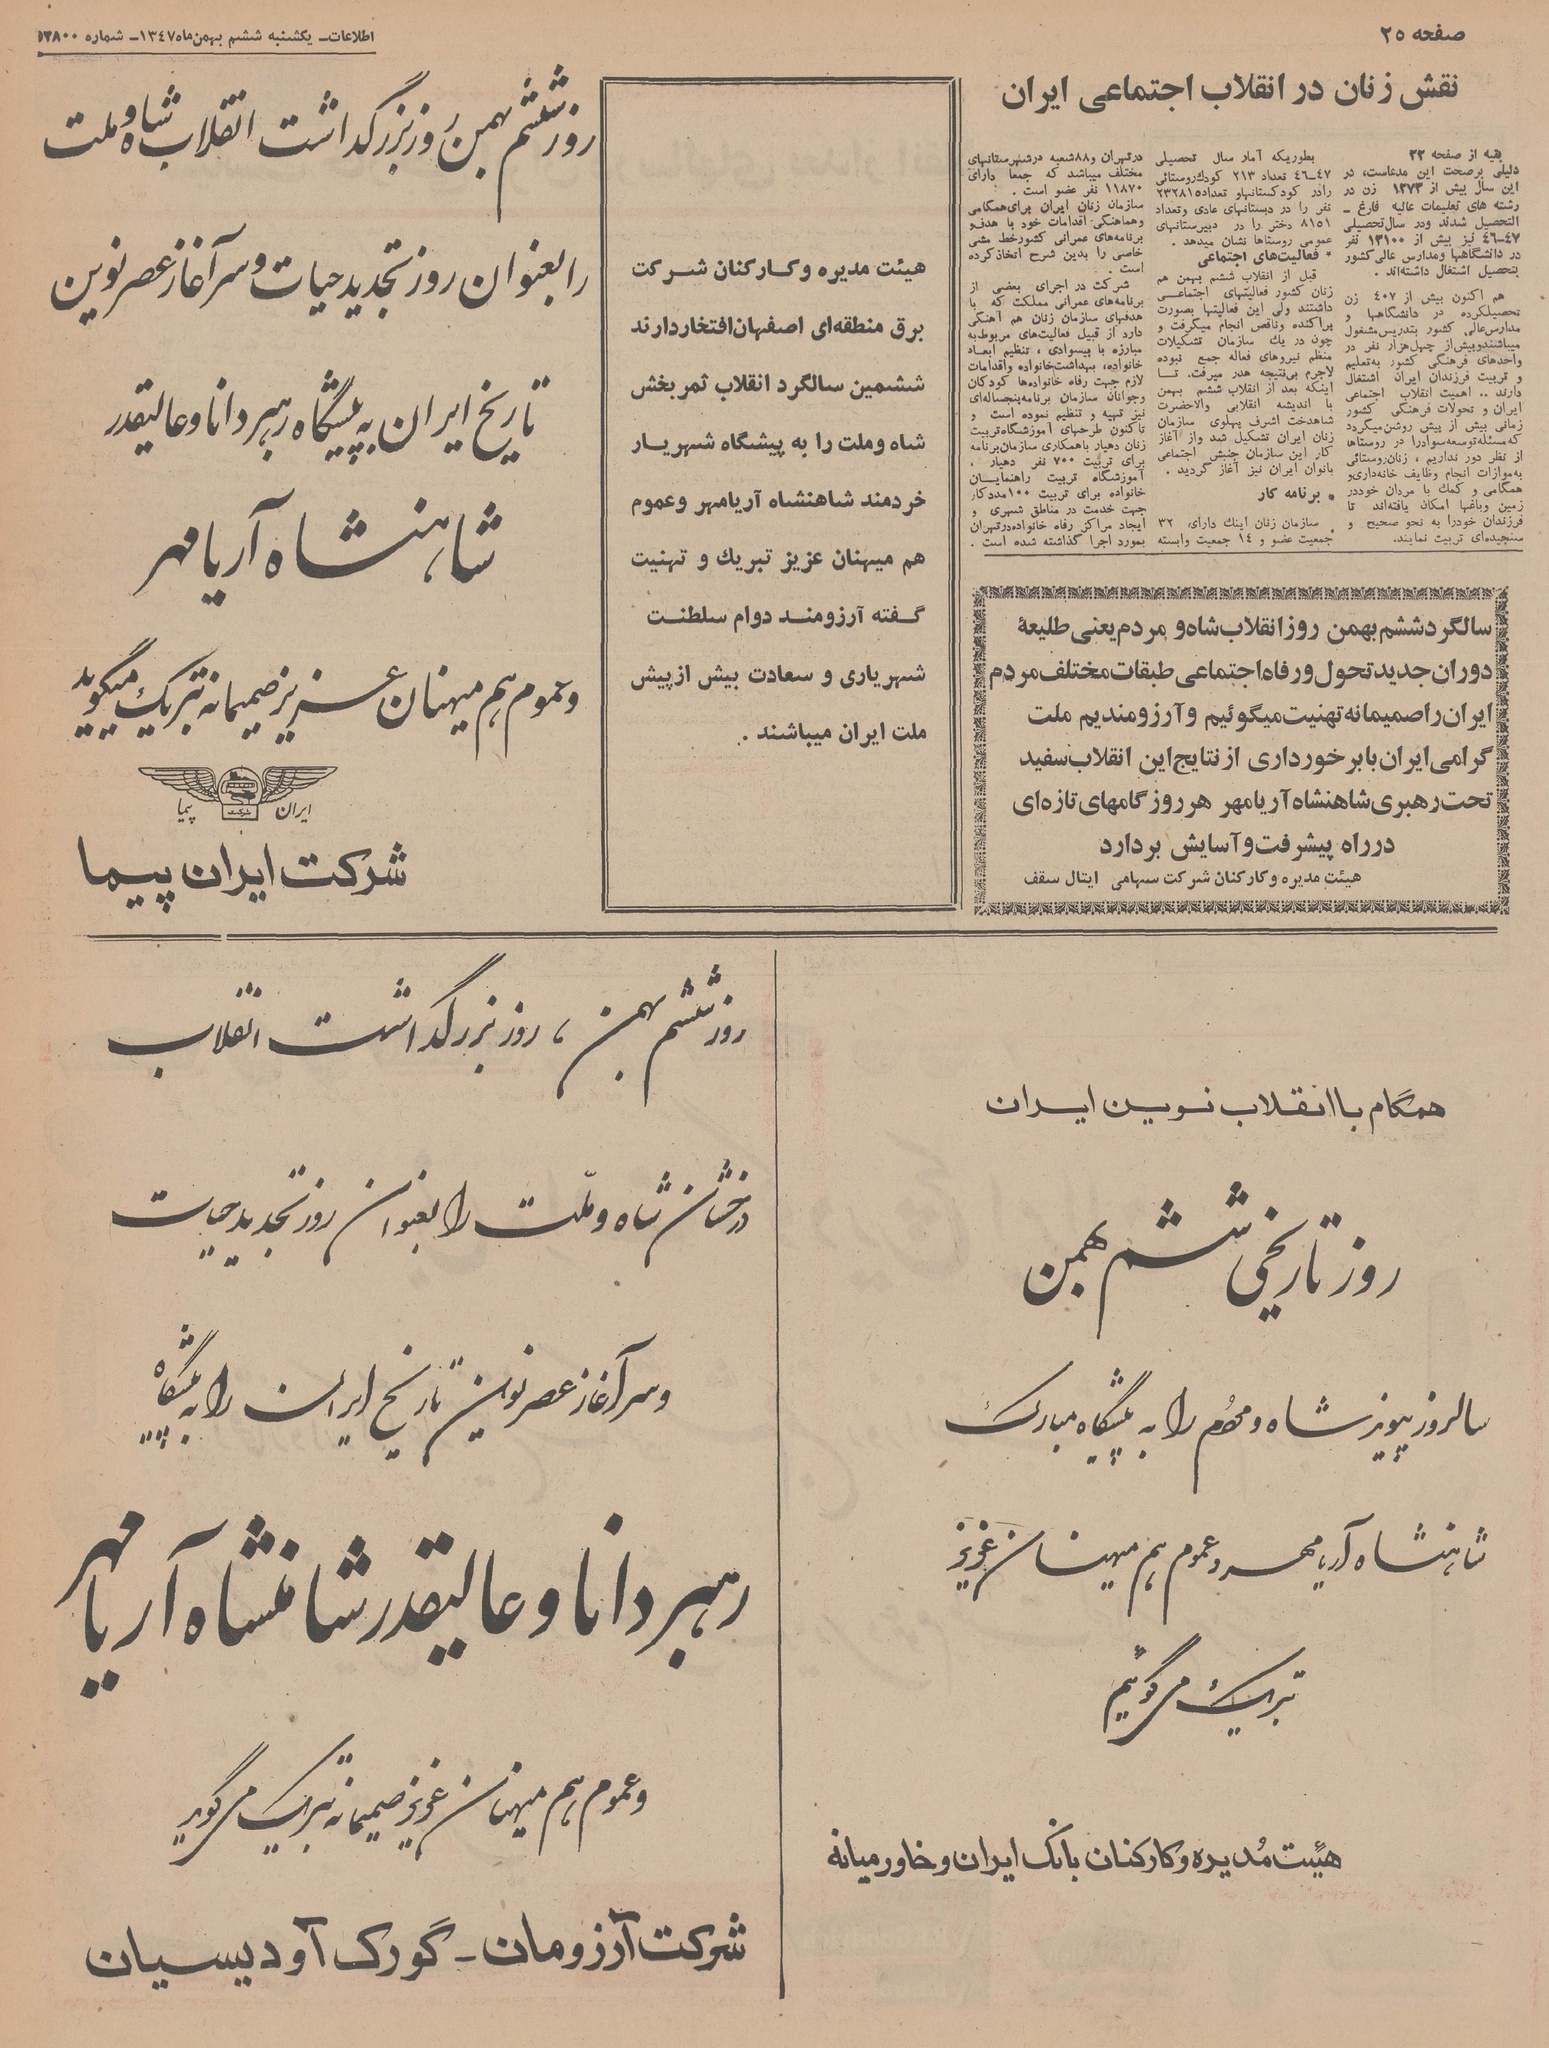 صفحه ۲۵
اطلاعات - یکشنبه ششم بهمن ماه ۱۳۴۷ - شماره ۱۲۸۰۰
نقش زنان در انقلاب اجتماعی ایران
بقیه از صفحه ۲۲
دلیلی برصحت این مدعاست، در
این سال بیش از ۱۲۷۳ زن در
رشته های تعلیمات عالیه فارغ -
التحصیل شدند ودر سال تحصیلی
۴۷-۴۶ نیز بیش از ۱۳۱۰۰ نفر
در دانشگاهها ومدارس عالی کشور
بتحصیل اشتغال داشته‌اند .
هم اکنون بیش از ۴۰۷ زن
تحصیلکرده در دانشگاهها و
مدارس عالی کشور بتدریس مشغول
میباشند وبیش از چهل هزار نفر در
واحدهای فرهنگی کشور به تعلیم
و تربیت فرزندان ایران اشتغال
دارند .. اهمیت انقلاب اجتماعی
ایران و تحولات فرهنگی کشور
زمانی بیش از پیش روشن میگردد
که مسئله توسعه سواد را در روستاها
از نظر دور نداریم ، زنان روستائی
به موازات انجام وظایف خانه داری و
همگامی و کمک با مردان خود در
زمین وباغها امکان یافته‌اند تا
فرزندان خودرا به نحو صحیح و
سنجیده‌ای تربیت نمایند.
بطوریکه آمار سال تحصیلی
۴۷-۴۶ تعداد ۲۱۳ کودک روستائی
رادر کودکستانها و تعداد ۲۳۲۸۱۵
نفر را در دبستانهای عادی وتعداد
۸۱۵۱ دختر را در دبیرستانهای
عمومی روستاها نشان میدهد .
* فعالیت‌های اجتماعی
قبل از انقلاب ششم بهمن هم
زنان کشور فعالیتهای اجتماعی
داشتند ولی این فعالیتها بصورت
پراکنده وناقص انجام میگرفت و
چون در یک سازمان تشکیلات
منظم نیروهای فعاله جمع نبوده
لاجرم بی‌نتیجه هدر میرفت. تا
اینکه بعد از انقلاب ششم بهمن
با اندیشه انقلابی والاحضرت
شاهدخت اشرف پهلوی سازمان
زنان ایران تشکیل شد واز آغاز
کار این سازمان جنبش اجتماعی
بانوان ایران نیز آغاز گردید .
* برنامه کار
سازمان زنان اینک دارای، ۳۲
جمعیت عضو و ۱۴ جمعیت وابسته
در تهران و ۸۸ شعبه در شهرستانهای
مختلف میباشد که جمعا دارای
۱۱۸۷۰ نفر عضو است .
سازمان زنان ایران برای همگامی
وهماهنگی اقدامات خود با هدف و
برنامه‌های عمرانی کشور خط مشی
خاصی را بدین شرح اتخاذ کرده
است .
شرکت در اجرای بعضی از
برنامه‌های عمرانی مملکت که با
هدفهای سازمان زنان هم آهنگی
دارد از قبیل فعالیت‌های مربوط به
مبارزه با بیسوادی ، تنظیم ابعاد
خانواده، بهداشت خانواده واقدامات
لازم جهت رفاه خانواده‌ها کودکان
وجوانان سازمان برنامه پنجساله‌ای
نیز تهیه و تنظیم نموده است و
تاکنون طرحهای آموزشگاه تربیت
زنان دهیار باهمکاری سازمان برنامه
برای تربیت ۷۰۰ نفر دهیار ،
آموزشگاه تربیت راهنمایان
خانواده برای تربیت ۱۰۰ مددکار
جهت خدمت در مناطق شهری و
ایجاد مراکز رفاه خانواده در تهران
بمورد اجرا گذاشته شده است .
سالگرد ششم بهمن روز انقلاب شاه و مردم یعنی طلیعهٔ
دوران جدید تحول و رفاه اجتماعی طبقات مختلف مردم
ایران را صمیمانه تهنیت میگوئیم و آرزومندیم ملت
گرامی ایران با برخورداری از نتایج این انقلاب سفید
تحت رهبری شاهنشاه آریامهر هر روز گامهای تازه‌ای
در راه پیشرفت و آسایش بردارد
هیئت مدیره و کارکنان شرکت سهامی ایتال سقف
هیئت مدیره و کارکنان شرکت
برق منطقه‌ای اصفهان افتخار دارند
ششمین سالگرد انقلاب ثمر بخش
شاه و ملت را به پیشگاه شهریار
خردمند شاهنشاه آریامهر و عموم
هم میهنان عزیز تبریک و تهنیت
گفته آرزومند دوام سلطنت
شهریاری و سعادت بیش از پیش
ملت ایران میباشند .
روز ششم بهمن روز بزرگداشت انقلاب شاه و ملت
را بعنوان روز تجدید حیات و سرآغاز عصر نوین
تاریخ ایران به پیشگاه رهبر دانا و عالیقدر
شاهنشاه آریامهر
و عموم هم میهنان عزیز صمیمانه تبریک میگوید
ایران پیما
شرکت
شرکت ایران پیما
همگام با انقلاب نوین ایران
روز تاریخی ششم بهمن
سالروز پیوند شاه و مردم را به پیشگاه مبارک
شاهنشاه آریامهر و عموم هم میهنان عزیز
تبریک می گوئیم
هیئت مدیره و کارکنان بانک ایران و خاورمیانه
روز ششم بهمن ، روز بزرگداشت انقلاب
درخشان شاه و ملت را بعنوان روز تجدید حیات
و سرآغاز عصر نوین تاریخ ایران را به پیشگاه
رهبر دانا و عالیقدر شاهنشاه آریامهر
و عموم هم میهنان عزیز صمیمانه تبریک می گوید
شرکت آرزومان - گورک آودیسیان